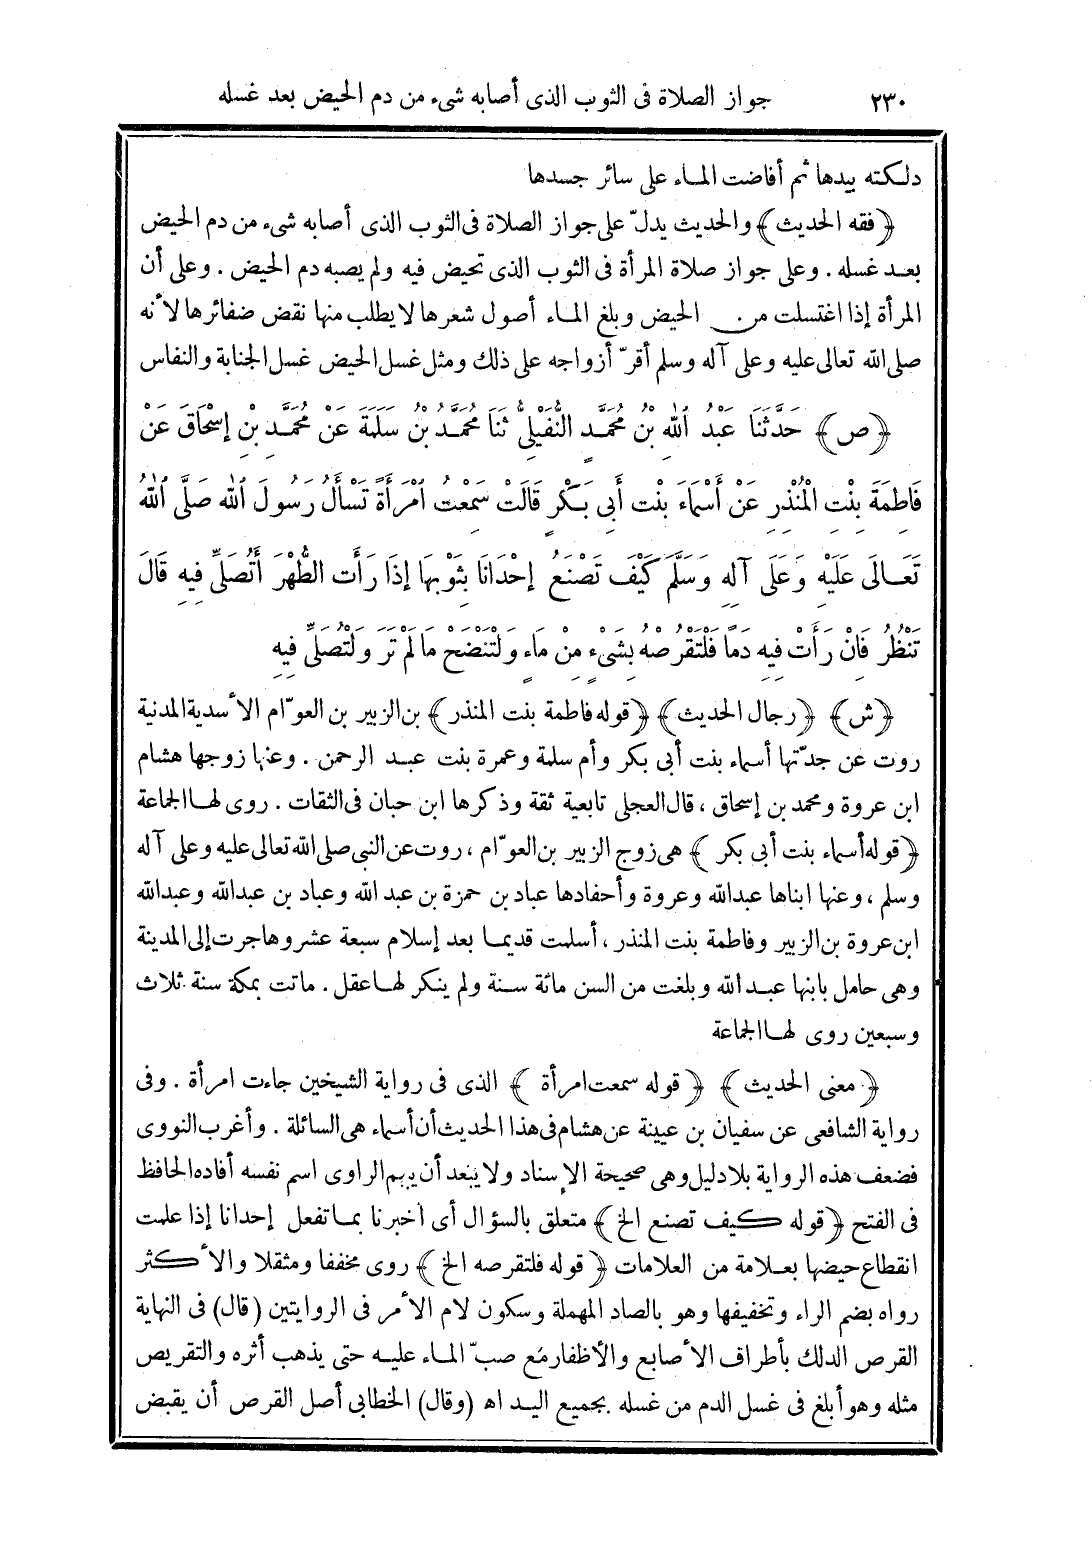 ٢٣٠ جواز الصلاة فى الثوب الذى أصابه شىء من دم الحيض بعد غسله
دلكته بيدها ثم أفاضت الماء على سائر جسدها
﴿فقه الحديث﴾ والحديث يدلّ على جواز الصلاة فى الثوب الذى أصابه شىء من دم الحيض
بعد غسله . وعلى جواز صلاة المرأة فى الثوب الذى تحيض فيه ولم يصبه دم الحيض . وعلى أن
المرأة إذا اغتسلت من الحيض وبلغ الماء أصول شعرها لا يطلب منها نقض ضفائرها لأنه
صلى الله تعالى عليه وعلى آله وسلم أقرّ أزواجه على ذلك ومثل غسل الحيض غسل الجنابة والنفاس
﴿ص﴾ حَدَّثَنَا عَبْدُ اللهِ بْنُ مُحَمَّدٍ النُّفَيْلِىُّ ثَنَا مُحَمَّدُ بْنُ سَلَمَةَ عَنْ مُحَمَّدِ بْنِ إِسْحَاقَ عَنْ
فَاطِمَةَ بِنْتِ الْمُنْذِرِ عَنْ أَسْمَاءَ بِنْتِ أَبِى بَكْرٍ قَالَتْ سَمِعْتُ امْرَأَةً تَسْأَلُ رَسُولَ اللهِ صَلَّى اللهُ
تَعَالَى عَلَيْهِ وَعَلَى آلِهِ وَسَلَّمَ كَيْفَ تَصْنَعُ إِحْدَانَا بِثَوْبِهَا إِذَا رَأَتِ الطُّهْرَ أَتُصَلِّى فِيهِ قَالَ
تَنْظُرُ فَانْ رَأَتْ فِيهِ دَمًا فَلْتَقْرُصْهُ بِشَىْءٍ مِنْ مَاءٍ وَلْتَنْضَحْ مَا لَمْ تَرَ وَلْتُصَلِّى فِيهِ
﴿ش﴾ ﴿رجال الحديث﴾ ﴿قوله فاطمة بنت المنذر﴾ بن الزبير بن العوّام الأسدية المدنية
روت عن جدّتها أسماء بنت أبى بكر وأم سلمة وعمرة بنت عبد الرحمن . وعنها زوجها هشام
ابن عروة ومحمد بن إسحاق ، قال العجلى تابعية ثقة وذكرها ابن حبان فى الثقات . روى لها الجماعة
﴿قوله أسماء بنت أبى بكر﴾ هى زوج الزبير بن العوّام ، روت عن النبى صلى الله تعالى عليه وعلى آله
وسلم ، وعنها ابناها عبدالله وعروة وأحفادها عباد بن حمزة بن عبد الله وعباد بن عبدالله وعبدالله
ابن عروة بن الزبير وفاطمة بنت المنذر ، أسلمت قديما بعد إسلام سبعة عشر وهاجرت إلى المدينة
وهى حامل بابنها عبد الله وبلغت من السن مائة سنة ولم ينكر لها عقل . ماتت بمكة سنة ثلاث
وسبعين روى لها الجماعة
﴿معنى الحديث﴾ ﴿قوله سمعت امرأة﴾ الذى فى رواية الشيخين جاءت امرأة . وفى
رواية الشافعى عن سفيان بن عيينة عن هشام فى هذا الحديث أن أسماء هى السائلة . وأغرب النووى
فضعف هذه الرواية بلا دليل وهى صحيحة الإسناد ولا يبعد أن يبهم الراوى اسم نفسه أفاده الحافظ
فى الفتح ﴿قوله كيف تصنع الخ﴾ متعلق بالسؤال أى أخبرنا بما تفعل إحدانا إذا علمت
انقطاع حيضها بعلامة من العلامات ﴿قوله فلتقرصه الخ﴾ روى مخففا ومثقلا والأكثر
رواه بضم الراء وتخفيفها وهو بالصاد المهملة وسكون لام الأمر فى الروايتين (قال) فى النهاية
القرص الدلك بأطراف الأصابع والأظفار مع صبّ الماء عليه حتى يذهب أثره والتقريص
مثله وهو أبلغ فى غسل الدم من غسله بجميع اليد اه (وقال) الخطابى أصل القرص أن يقبض